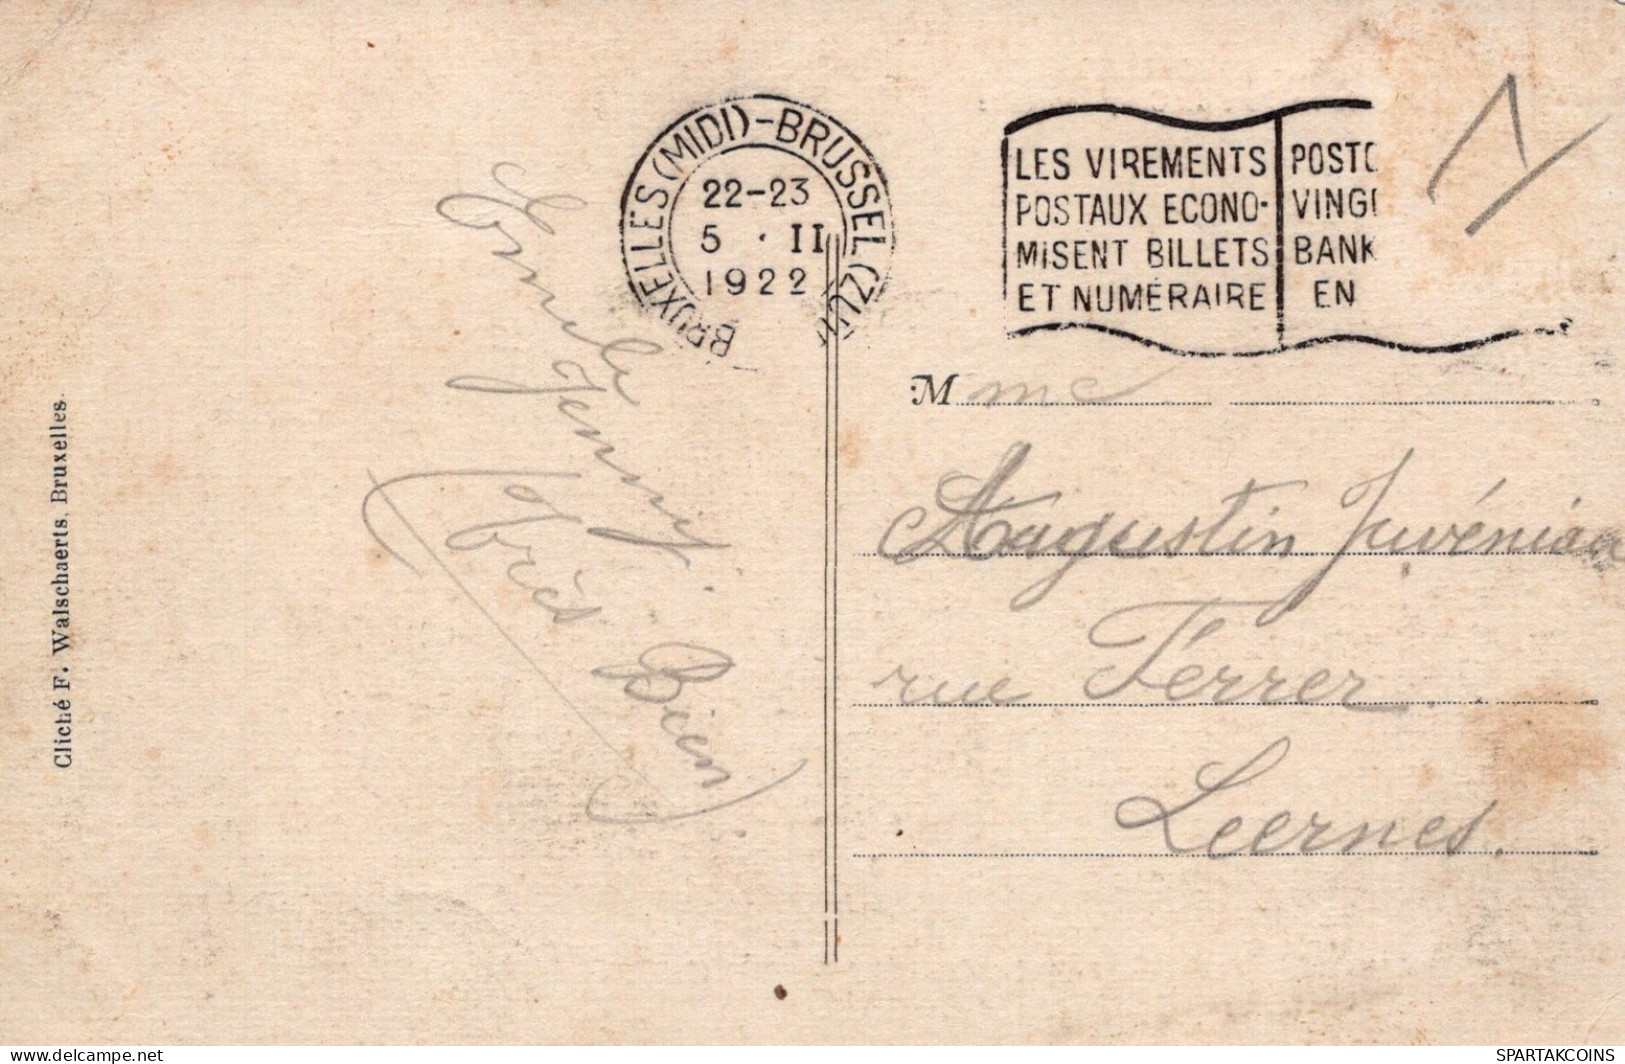 BRUXELLES (MIDI)-BRUSSEL (ZUI
22-23
5 · II
1922
LES VIREMENTS
POSTAUX ECONO-
MISENT BILLETS
ET NUMÉRAIRE
POSTC
VING
BANK
EN
Jenny
(Très Bien)
Cliché F. Walschaerts, Bruxelles.
M me
Augustin
rue Ferrer
Leernes.
delcampe.net
SPARTAKCOINS